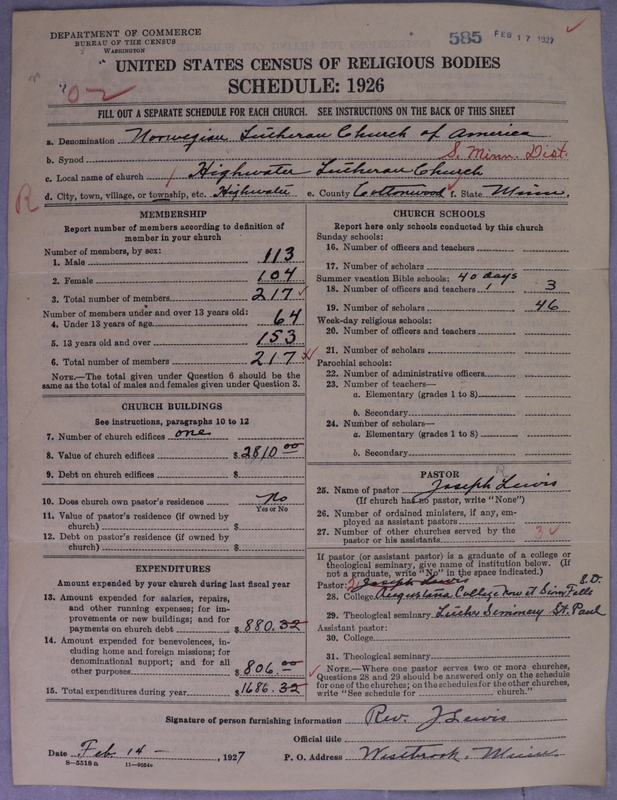 DEPARTMENT OF COMMERCE
BUREAU OF THE CENSUS
WASHINGTON
585 FEB 17 1927
UNITED STATES CENSUS OF RELIGIOUS BODIES
SCHEDULE: 1926
FILL OUT A SEPARATE SCHEDULE FOR EACH CHURCH. SEE INSTRUCTIONS ON THE BACK OF THIS SHEET
a. Denomination Norwegian Lutheran Church of America
b. Synod S. Minn. Dist.
c. Local name of church Highwater Lutheran Church
R
d. City, town, village, or township, etc. Highwater e. County Cottonwood f. State Minn.
MEMBERSHIP
Report number of members according to definition of member in your church
Number of members, by sex:
1. Male 113
2. Female 104
3. Total number of members 217
Number of members under and over 13 years old:
4. Under 13 years of age 64
5. 13 years old and over 153
6. Total number of members 217
NOTE.—The total given under Question 6 should be
same as the total of males and females given under Question 3.
CHURCH BUILDINGS
See instructions, paragraphs 10 to 12
7. Number of church edifices one
8. Value of church edifices $2810 00
9. Debt on church edifices $
10. Does church own pastor's residence No
Yes or No
11. Value of pastor's residence (if owned by
church) $
12. Debt on pastor's residence (if owned by
church) $
EXPENDITURES
Amount expended by your church during last fiscal year
13. Amount expended for salaries, repairs,
and other running expenses; for im-
provements or new buildings; and for
payments on church debt $880.32
14. Amount expended for benevolences, in-
cluding home and foreign missions; for
denominational support; and for all
other purposes $806.00
15. Total expenditures during year $1686.32
CHURCH SCHOOLS
Report here only schools conducted by this church
Sunday schools:
16. Number of officers and teachers
17. Number of scholars
Summer vacation Bible schools: 40 days
18. Number of officers and teachers 3
19. Number of scholars 46
Week-day religious schools:
20. Number of officers and teachers
21. Number of scholars
Parochial schools:
22. Number of administrative officers
23. Number of teachers—
a. Elementary (grades 1 to 8)
b. Secondary
24. Number of scholars—
a. Elementary (grades 1 to 8)
b. Secondary
PASTOR
25. Name of pastor Joseph Lewis
(If church has no pastor, write "None")
26. Number of ordained ministers, if any, em-
ployed as assistant pastors
27. Number of other churches served by the
pastor or his assistants 3
If pastor (or assistant pastor) is a graduate of a college or
theological seminary, give name of institution below. (If
not a graduate, write "No" in the space indicated.)
Pastor: Joseph Lewis S.D.
28. College Augustana College now at Sioux Falls
29. Theological seminary Luther Seminary St. Paul
Assistant pastor:
30. College
31. Theological seminary
NOTE.—Where one pastor serves two or more churches,
Questions 28 and 29 should be answered only on the schedule
for one of the churches; on the schedules for the other churches,
write "See schedule for church."
Signature of person furnishing information Rev. J Lewis
Official title
Date Feb. 14 - , 1927 P. O. Address Westbrook, Minn.
8-5518a